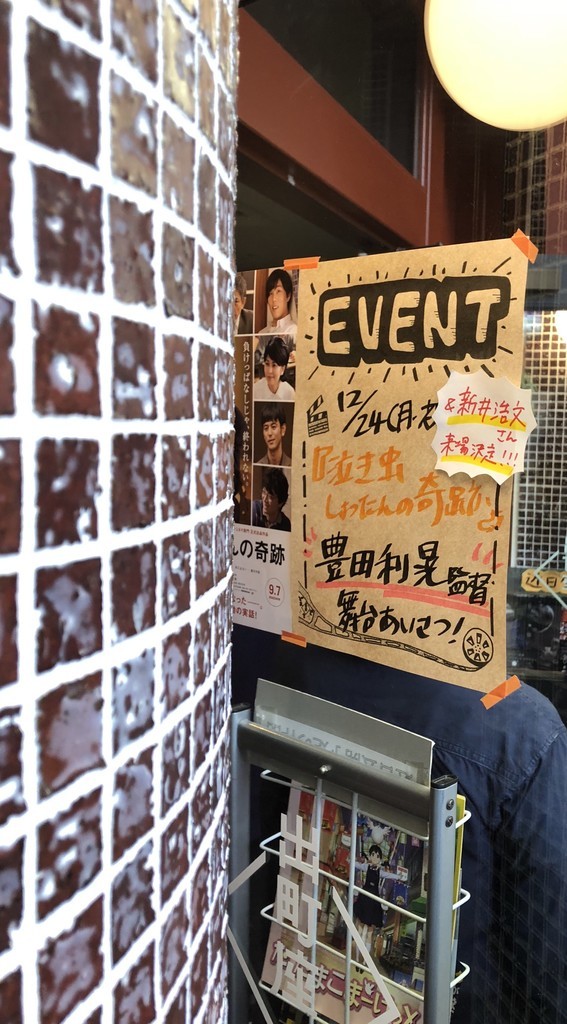 EVENT
12/24(月・祝)
&新井浩文
さん
来場決定!!!
『泣き虫
しょったんの奇跡』
豊田利晃監督
舞台あいさつ!
負けっぱなしじゃ、終われない。
んの奇跡
9.7
の実話!
出町座
たまこまーけっと